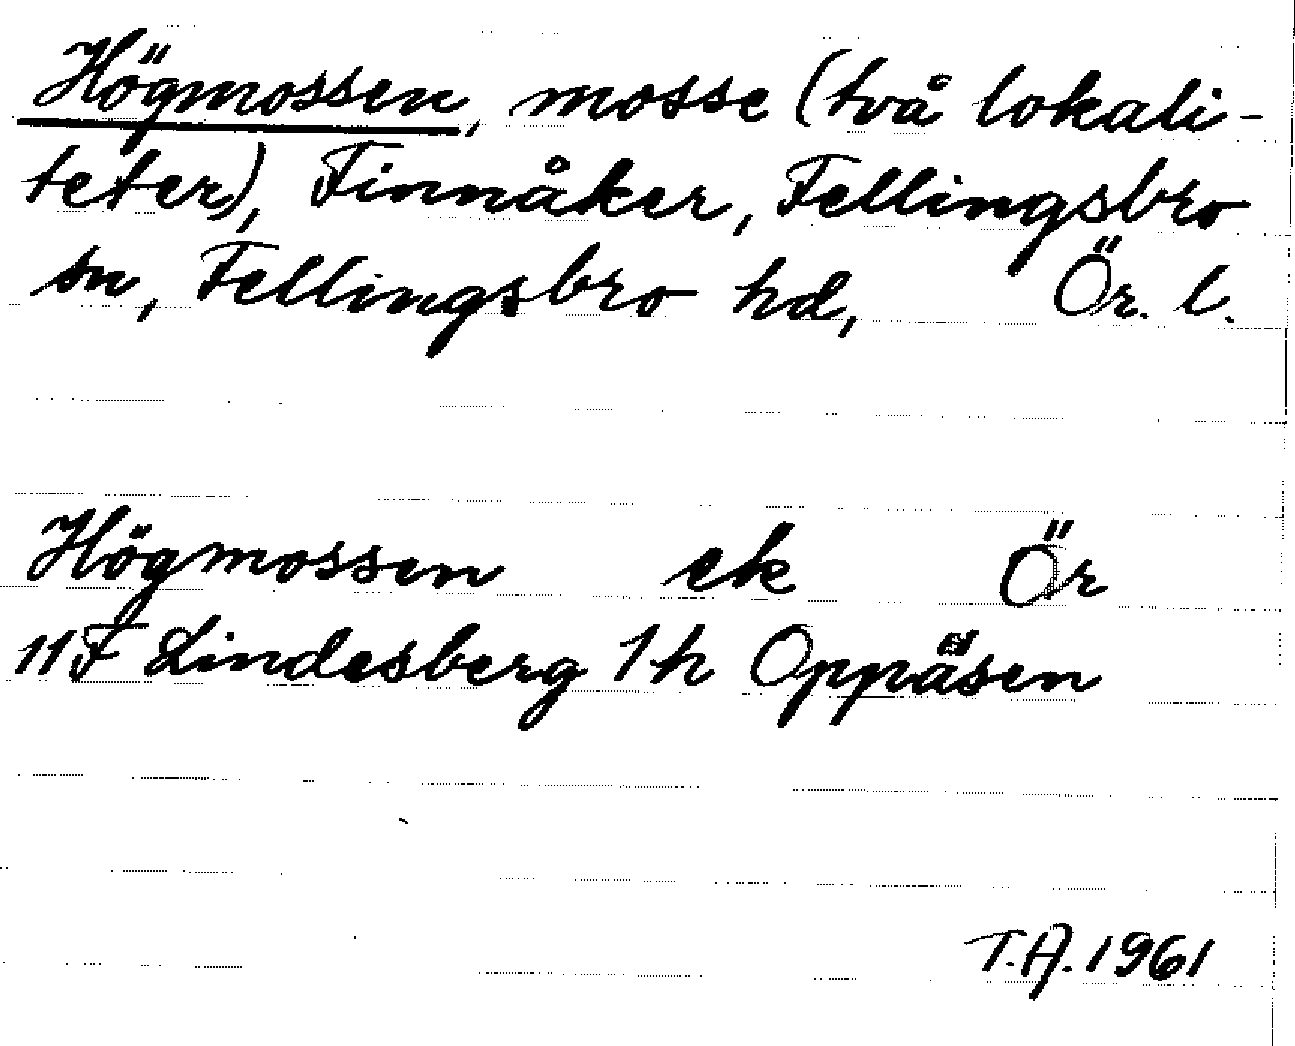 Högmossen, mosse (två lokali-
teter), Finnåker, Fellingsbro
sn, Fellingsbro hd, Ör. l.
Högmossen ek Ör
11F Lindesberg 1h Oppåsen
T.A. 1961